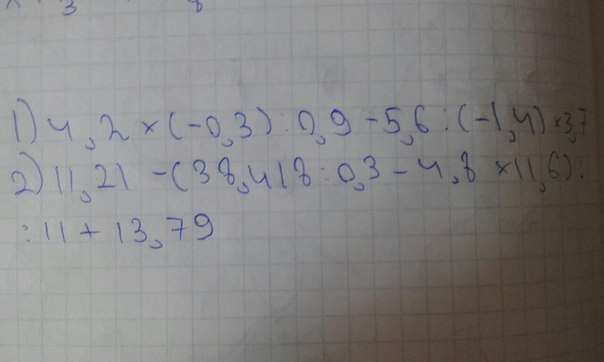 1) 4,2 × (-0,3) : 0,9 - 5,6 : (-1,4) × 3,7
2) 11,21 - (38,418 : 0,3 - 4,8 × 11,6) :
: 11 + 13,79